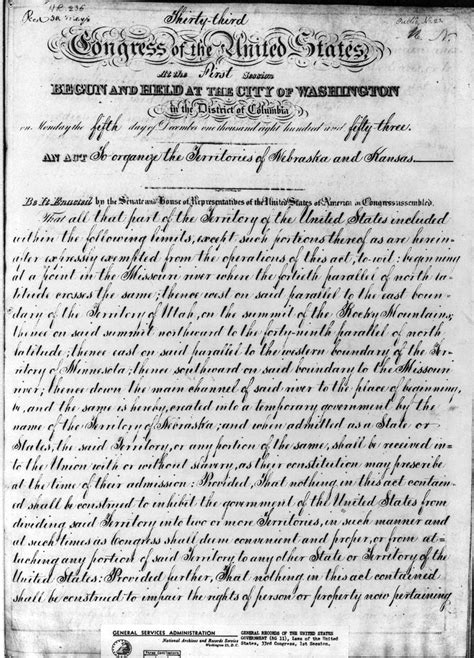 HR. 236
Thirty-third
Congress of the United States,
At the First Session
BEGUN AND HELD AT THE CITY OF WASHINGTON
in the District of Columbia
on Monday the fifth day of December one thousand eight hundred and fifty-three.
AN ACT To organize the Territories of Nebraska and Kansas
Be It Enacted by the Senate and House of Representatives of the United States of America in Congress assembled,
That all that part of the Territory of the United States included
within the following limits, except such portions thereof as are herein-
after expressly exempted from the operations of this act, to wit: beginning
at a point in the Missouri river where the fortieth parallel of north la-
titude crosses the same; thence east on said parallel to the east boun-
dary of the Territory of Utah, on the summit of the Rocky Mountains;
thence on said summit northward to the forty-ninth parallel of north
latitude; thence east on said parallel to the western boundary of the Ter-
ritory of Minnesota; thence southward on said boundary to the Missouri
river; thence down the main channel of said river to the place of beginning,
be, and the same is hereby, created into a temporary government by the
name of the Territory of Nebraska; and when admitted as a State or
States, the said Territory, or any portion of the same, shall be received in-
to the Union with or without slavery, as their constitution may prescribe
at the time of their admission: Provided, That nothing in this act contain-
ed shall be construed to inhibit the government of the United States from
dividing said Territory into two or more Territories, in such manner and
at such times as Congress shall deem convenient and proper, or from at-
taching any portion of said Territory to any other State or Territory of the
United States: Provided further, That nothing in this act contained
shall be construed to impair the rights of person or property now pertaining
GENERAL SERVICES ADMINISTRATION
National Archives and Records Service
Washington 25, D. C.
GENERAL RECORDS OF THE UNITED STATES
GOVERNMENT (RG 11), Laws of the United
States, 33rd Congress, 1st Session.